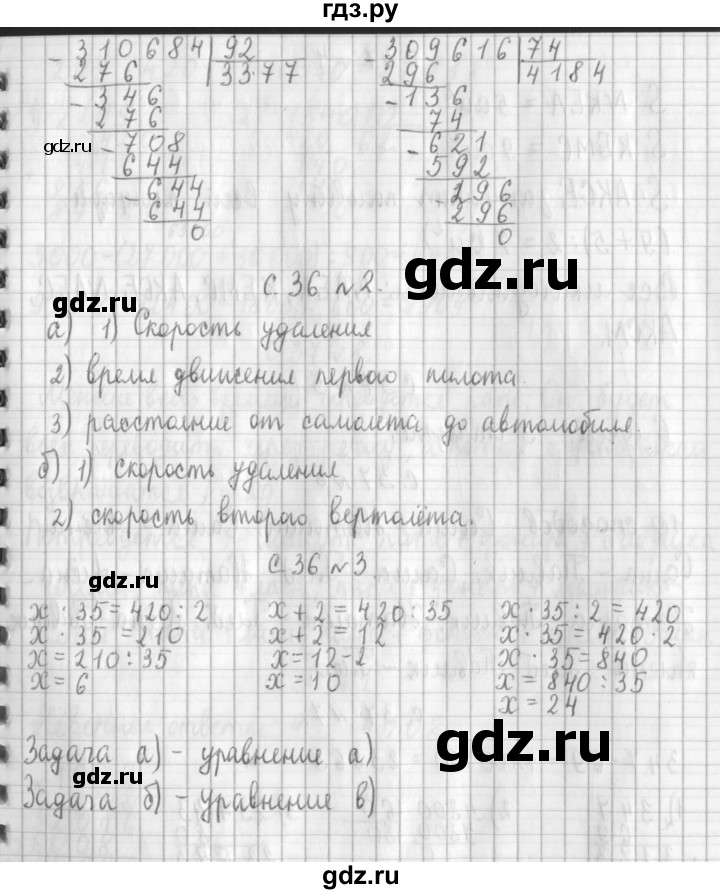 гдз.ру
310684 | 92
276 | 3377
346
276
708
644
644
644
0
309616 | 74
296 | 4184
136
74
621
592
296
296
0
gdz.ru
gdz.ru
С. 36 №2.
gdz.ru
а) 1) Скорость удаления
2) время движения первого пилота.
3) расстояние от самолета до автомобиля.
б) 1) скорость удаления
2) скорость второго вертолёта.
С 36 №3
gdz.ru
х · 35 = 420 : 2
х · 35 = 210
х = 210 : 35
х = 6
х + 2 = 420 : 35
х + 2 = 12
х = 12 - 2
х = 10
х · 35 : 2 = 420
х · 35 = 420 · 2
х · 35 = 840
х = 840 : 35
х = 24
gdz.ru
Задача а) - уравнение а)
gdz.ru
Задача б) - уравнение в)
gdz.ru